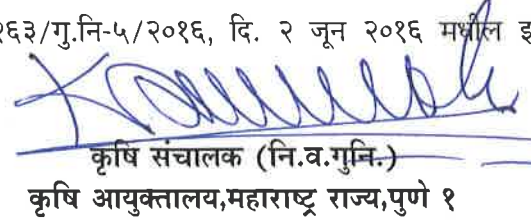 ६३/गु.नि-५/२०१६, दि. २ जून २०१६ मधील इ
कृषि संचालक (नि.व.गुनि.)
कृषि आयुक्तालय,महाराष्ट्र राज्य,पुणे १